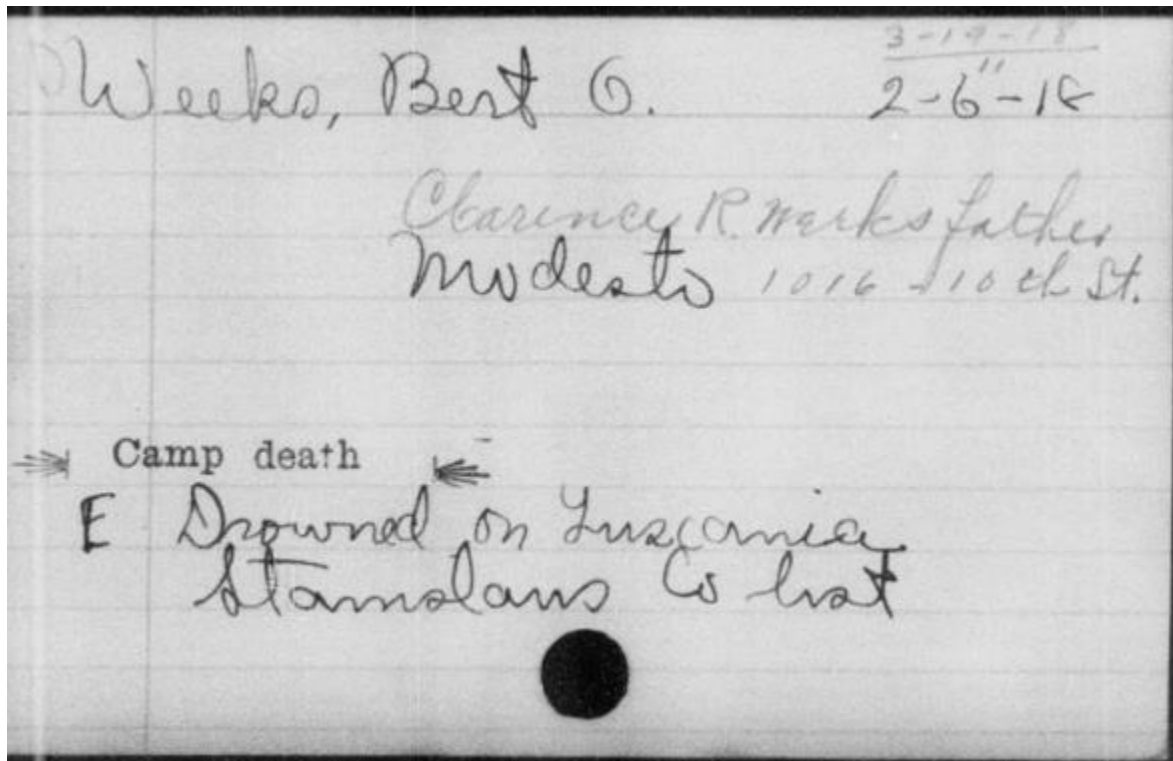 3-19-18
Weeks, Bert O. 2-6-18
Clarence R. Weeks father
Modesto 1016 - 10th St.
Camp death
E Drowned on Tuscania
Stanislaus Co list